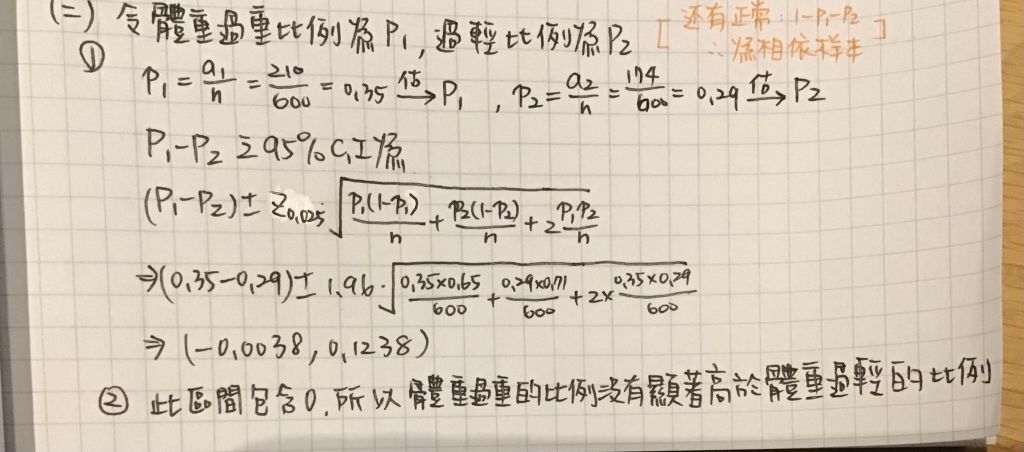 (二) 令體重過重比例為P₁, 過輕比例為P₂ [還有正常:1-P₁-P₂ ∴為相依樣本]
① P₁ = a₁/n = 210/600 = 0.35 估→ P₁ , P₂ = a₂/n = 174/600 = 0.29 估→ P₂
P₁-P₂ 之95% C.I為
(P₁-P₂) ± Z₀.₀₂₅ √(P₁(1-P₁)/n + P₂(1-P₂)/n + 2 P₁P₂/n)
⇒(0.35-0.29) ± 1.96 · √(0.35×0.65/600 + 0.29×0.71/600 + 2× 0.35×0.29/600)
⇒ (-0.0038, 0.1238)
② 此區間包含0, 所以體重過重的比例沒有顯著高於體重過輕的比例